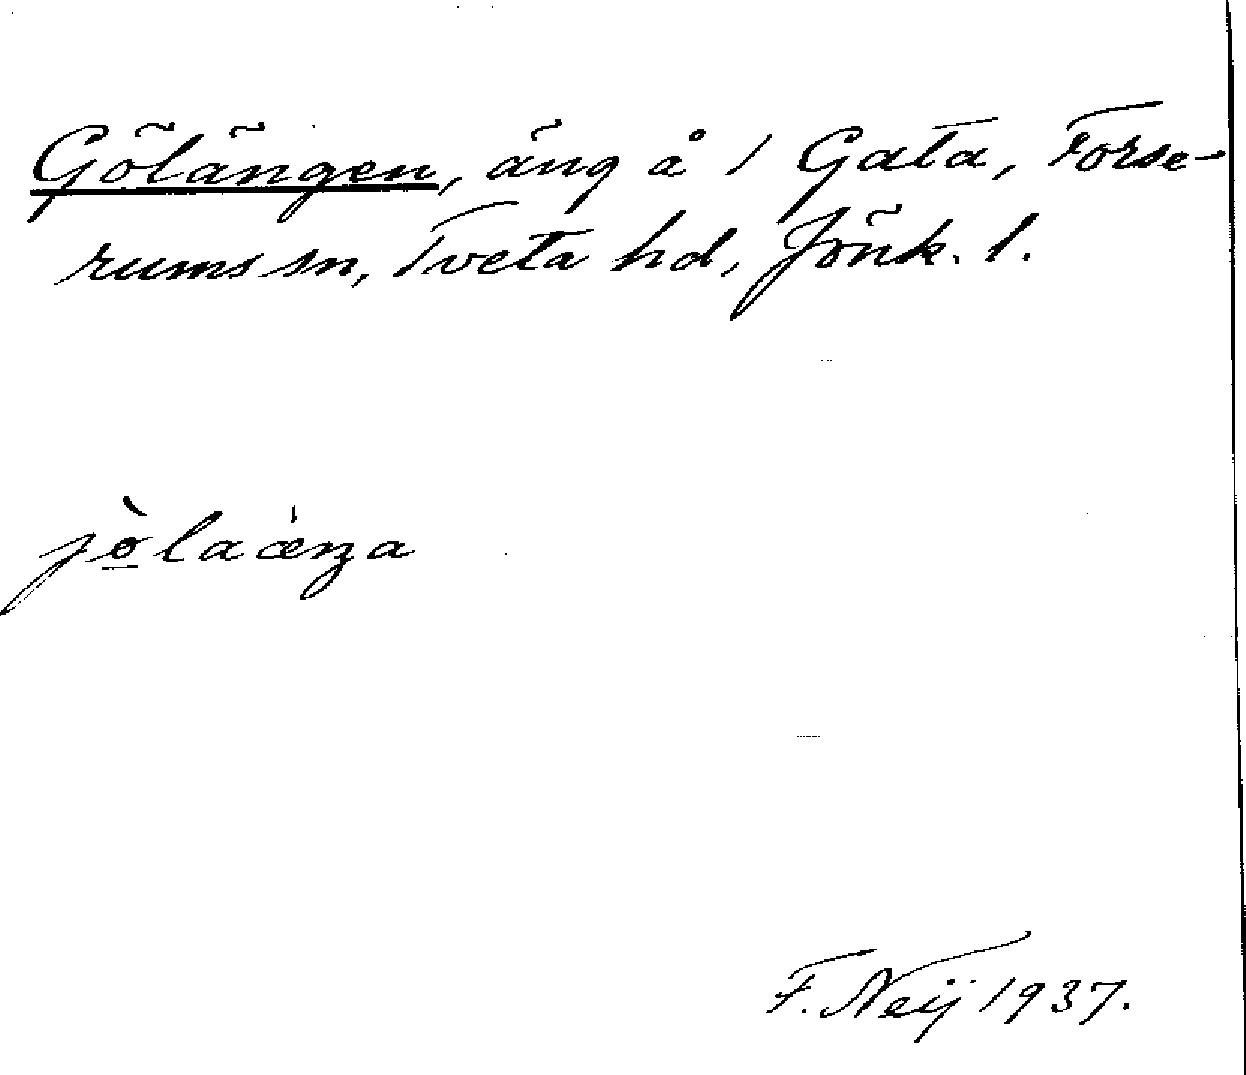 Gölängen, äng å 1 Gata, Forse-
rums sn, Tveta hd, Jönk. l.
jò̲laæ̀ŋa
F. Neij 1937.